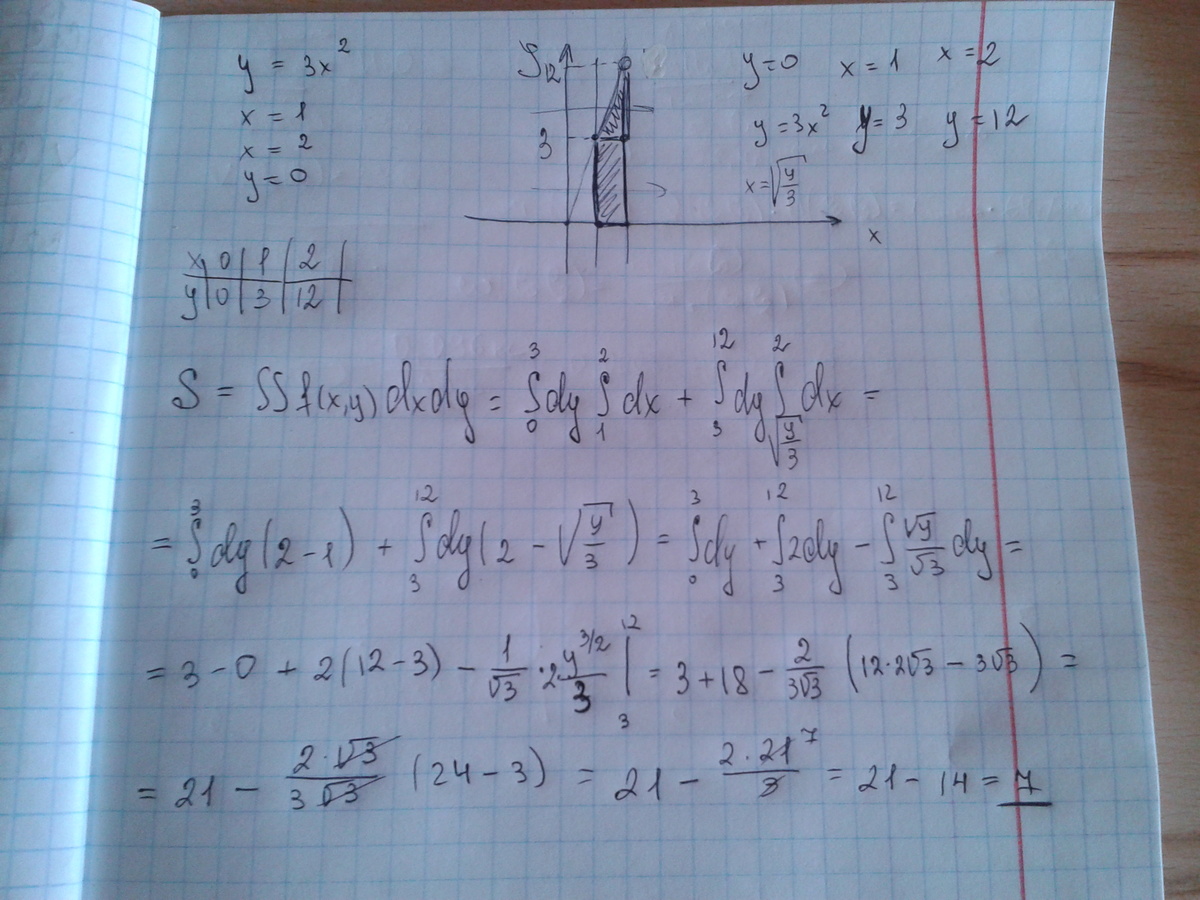 y = 3x²
x = 1
x = 2
y = 0
y
12
3
x
y=0 x=1 x=2
y=3x² y=3 y=12
x=√(y/3)
x | 0 | 1 | 2 |
y | 0 | 3 | 12 |
S = ∫∫ f(x,y) dxdy = ∫₀³ dy ∫₁² dx + ∫₃¹² dy ∫_{√(y/3)}² dx =
= ∫₀³ dy (2-1) + ∫₃¹² dy (2 - √(y/3)) = ∫₀³ dy + ∫₃¹² 2dy - ∫₃¹² √y/√3 dy =
= 3 - 0 + 2(12-3) - 1/√3 · 2 y^{3/2}/3 |₃¹² = 3 + 18 - 2/(3√3) (12·2√3 - 3√3) =
= 21 - (2·√3)/(3√3) (24-3) = 21 - (2·21⁷)/3 = 21 - 14 = 7